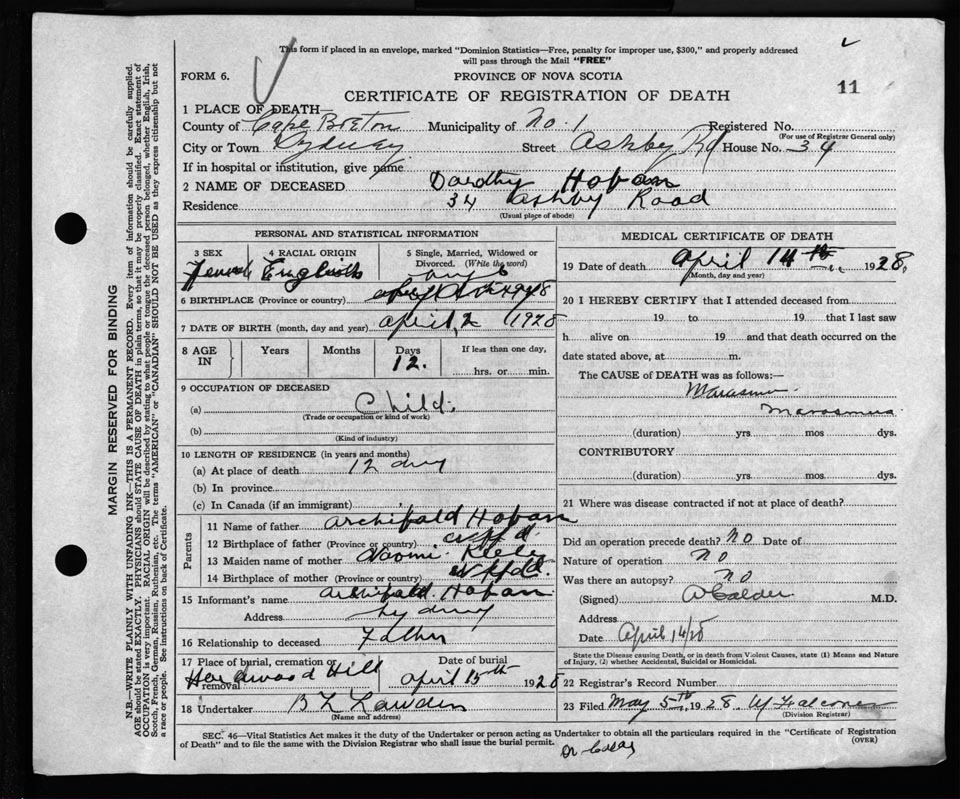 This form if placed in an envelope, marked "Dominion Statistics—Free, penalty for improper use, $300," and properly addressed
will pass through the Mail "FREE"
FORM 6.
PROVINCE OF NOVA SCOTIA
CERTIFICATE OF REGISTRATION OF DEATH
11
1 PLACE OF DEATH—
County of Cape Breton Municipality of No. 1 Registered No.
(For use of Registrar General only)
City or Town Sydney Street Ashby Rd House No. 34
If in hospital or institution, give name
2 NAME OF DECEASED Dorothy Hoban
Residence 34 Ashby Road
(Usual place of abode)
PERSONAL AND STATISTICAL INFORMATION
3 SEX Female
4 RACIAL ORIGIN English
5 Single, Married, Widowed or
Divorced. (Write the word)
6 BIRTHPLACE (Province or country)
7 DATE OF BIRTH (month, day and year) April, 2 1928
8 AGE IN
Years Months Days
12.
If less than one day,
hrs. or min.
9 OCCUPATION OF DECEASED
(a) Child.
(Trade or occupation or kind of work)
(b)
(Kind of industry)
10 LENGTH OF RESIDENCE (in years and months)
(a) At place of death 12 days
(b) In province
(c) In Canada (if an immigrant)
Parents
11 Name of father Archibald Hoban
12 Birthplace of father (Province or country) Nffd.
13 Maiden name of mother Naomi
14 Birthplace of mother (Province or country) Nffd.
15 Informant's name Archibald Hoban
Address Sydney
16 Relationship to deceased Father
17 Place of burial, cremation or
removal Hardwood Hill
Date of burial
April 15th 1928
18 Undertaker
(Name and address)
MEDICAL CERTIFICATE OF DEATH
19 Date of death April 14th 1928.
(Month, day and year)
20 I HEREBY CERTIFY that I attended deceased from
19 to 19 that I last saw
h alive on 19 and that death occurred on the
date stated above, at m.
The CAUSE of DEATH was as follows:—
Marasmus
Marasmus
(duration) yrs mos dys.
CONTRIBUTORY
(duration) yrs mos dys.
21 Where was disease contracted if not at place of death?
Did an operation precede death? No Date of
Nature of operation No
Was there an autopsy? No
(Signed) Calder M.D.
Address
Date April 14/28
State the Disease causing Death, or in death from Violent Causes, state (1) Means and Nature
of Injury, (2) whether Accidental, Suicidal or Homicidal.
22 Registrar's Record Number
23 Filed May 5th, 1928.
(Division Registrar)
SEC. 46—Vital Statistics Act makes it the duty of the Undertaker or person acting as Undertaker to obtain all the particulars required in the "Certificate of Registration
of Death" and to file the same with the Division Registrar who shall issue the burial permit.
(OVER)
MARGIN RESERVED FOR BINDING
N.B.—WRITE PLAINLY WITH UNFADING INK—THIS IS A PERMANENT RECORD. Every item of information should be carefully supplied.
AGE should be stated EXACTLY. PHYSICIANS should STATE CAUSE OF DEATH in plain terms, so that it may be properly classified. Exact statement of
OCCUPATION is very important. RACIAL ORIGIN will be described by stating to what people or tongue the deceased person belonged, whether English, Irish,
Scotch, French, German, Russian, Ruthenian, etc. The terms "AMERICAN" or "CANADIAN" SHOULD NOT BE USED as they express citizenship but not
a race or people. See instructions on back of Certificate.